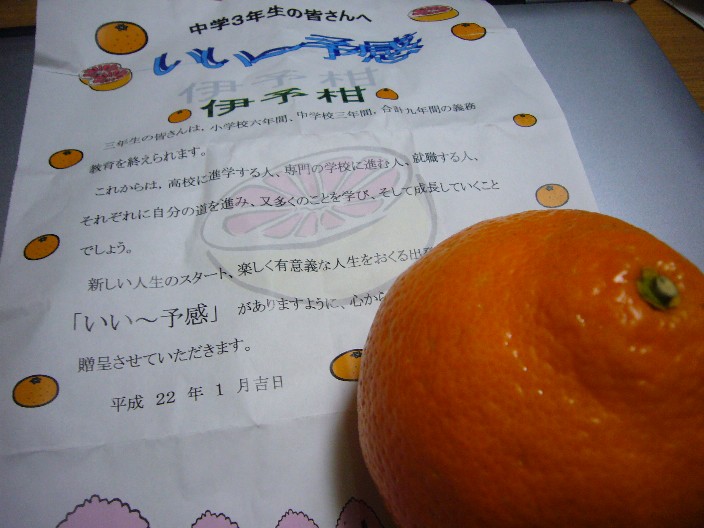 中学3年生の皆さんへ
いい～予感
伊予柑
三年生の皆さんは、小学校六年間、中学校三年間、合計九年間の義務
教育を終えられます。
これからは、高校に進学する人、専門の学校に進む人、就職する人、
それぞれに自分の道を進み、又多くのことを学び、そして成長していくこと
でしょう。
新しい人生のスタート、楽しく有意義な人生をおくる出
「いい～予感」 がありますように、心か
贈呈させていただきます。
平成 22 年 1 月吉日